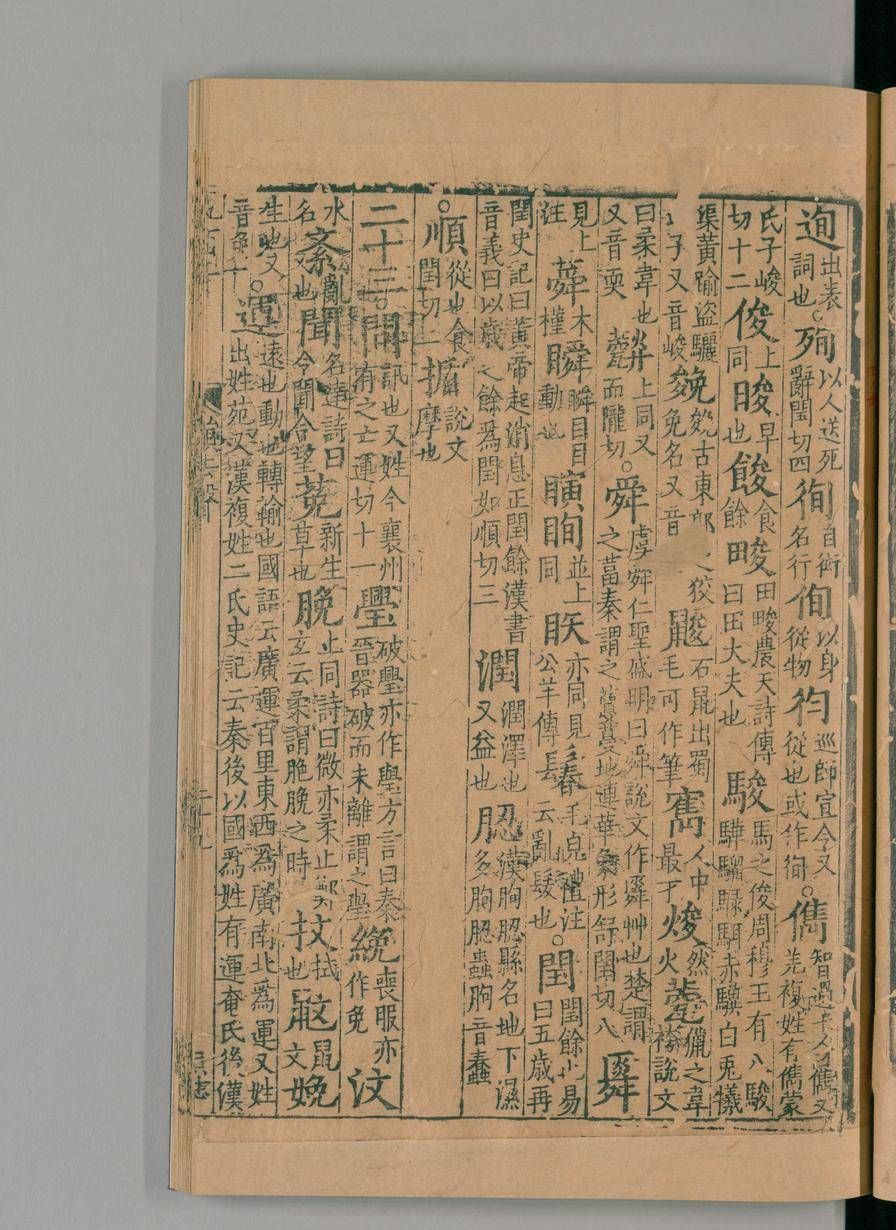 迿出表詞也。殉以人送死辭閏切四徇自衒名行侚以身從物㣕巡師宣令又從也或作徇。儁智過千人曰儁又羌複姓有儁蒙
氏子峻切十二俊上同晙早也餕食餘畯田畯農夫詩傳曰田大夫也駿馬之俊周穆王有八駿驊騮騄駬赤驥白兎犧
渠黃踰盜驪子又音峻㕙㕙古東郭之狡兔名又音鼥石鼠出蜀毛可作筆寯人中最才焌然火㼱獵之韋袴說文
曰柔韋也上同又又音耎而隴切。舜虞舜仁聖盛明曰舜說文作䑞艸也楚謂之葍秦謂之藑蔓地連華象形舒閏切八䑞
見上注蕣木槿瞬瞬目目動也瞚眴並上同眣亦同見公羊傳鬊毛克禮注云亂髮也。閏閏餘也易曰五歲再
閏史記曰黃帝起消息正閏餘漢書音義曰以歲之餘爲閏如順切三潤潤澤也又益也䏰漢朐䏰縣名地下濕多朐䏰蟲朐音蠢
。順從也食閏切二揗說文摩也
二十三。問訊也又姓今襄州有之亡運切十一璺破璺亦作舋方言曰秦晉器破而未離謂之璺絻喪服亦作免汶
水名紊亂也聞名達詩曰令聞令望莬新生草也脕上同詩曰薇亦柔止鄭玄云柔謂脆脕之時抆拭也鼤鼠文娩
生也又音免十。運遠也動也轉輸也國語云廣運百里東西爲廣南北爲運又姓出姓苑又漢複姓二氏史記云秦後以國爲姓有運奄氏後漢
二十九